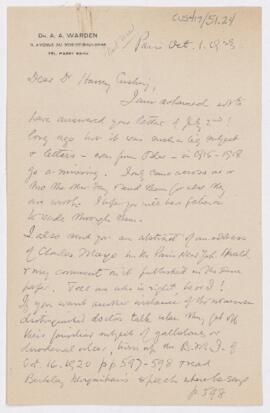 CUSH17/51.24
DR. A. A. WARDEN
TEL. PASSY
Paris Oct. 1. 1923
Dear Dr Harvey Cushing,
I am ashamed not to
have answered your letter of July 2nd!
long ago but it was such a big subject
& letters - even from Osler - in 1915-1918
go a missing. I only came across one or
two the other day & send them for what they
are worth. I hope you will have patience
to wade through them.
I also send you an abstract of an address
of Charles Mayo in the Paris New York Herald
& my comment on it published in the same
paper. Tell me who is right, he or I!
If you want another instance of the nonsense
distinguished doctors talk when they get off
their favourite subject of gallstones or
duodenal ulcer, turn up the B.M.J. of
Oct. 16. 1920 pp 597-598 & read
Berkeley Moynihan's speech where he says
p. 598